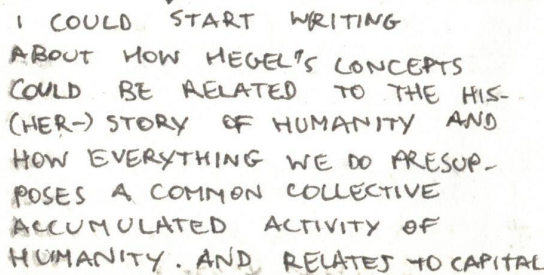 I COULD START WRITING
ABOUT HOW HEGEL'S CONCEPTS
COULD BE RELATED TO THE HIS-
(HER-) STORY OF HUMANITY AND
HOW EVERYTHING WE DO PRESUP-
POSES A COMMON COLLECTIVE
ACCUMULATED ACTIVITY OF
HUMANITY. AND RELATES TO CAPITAL